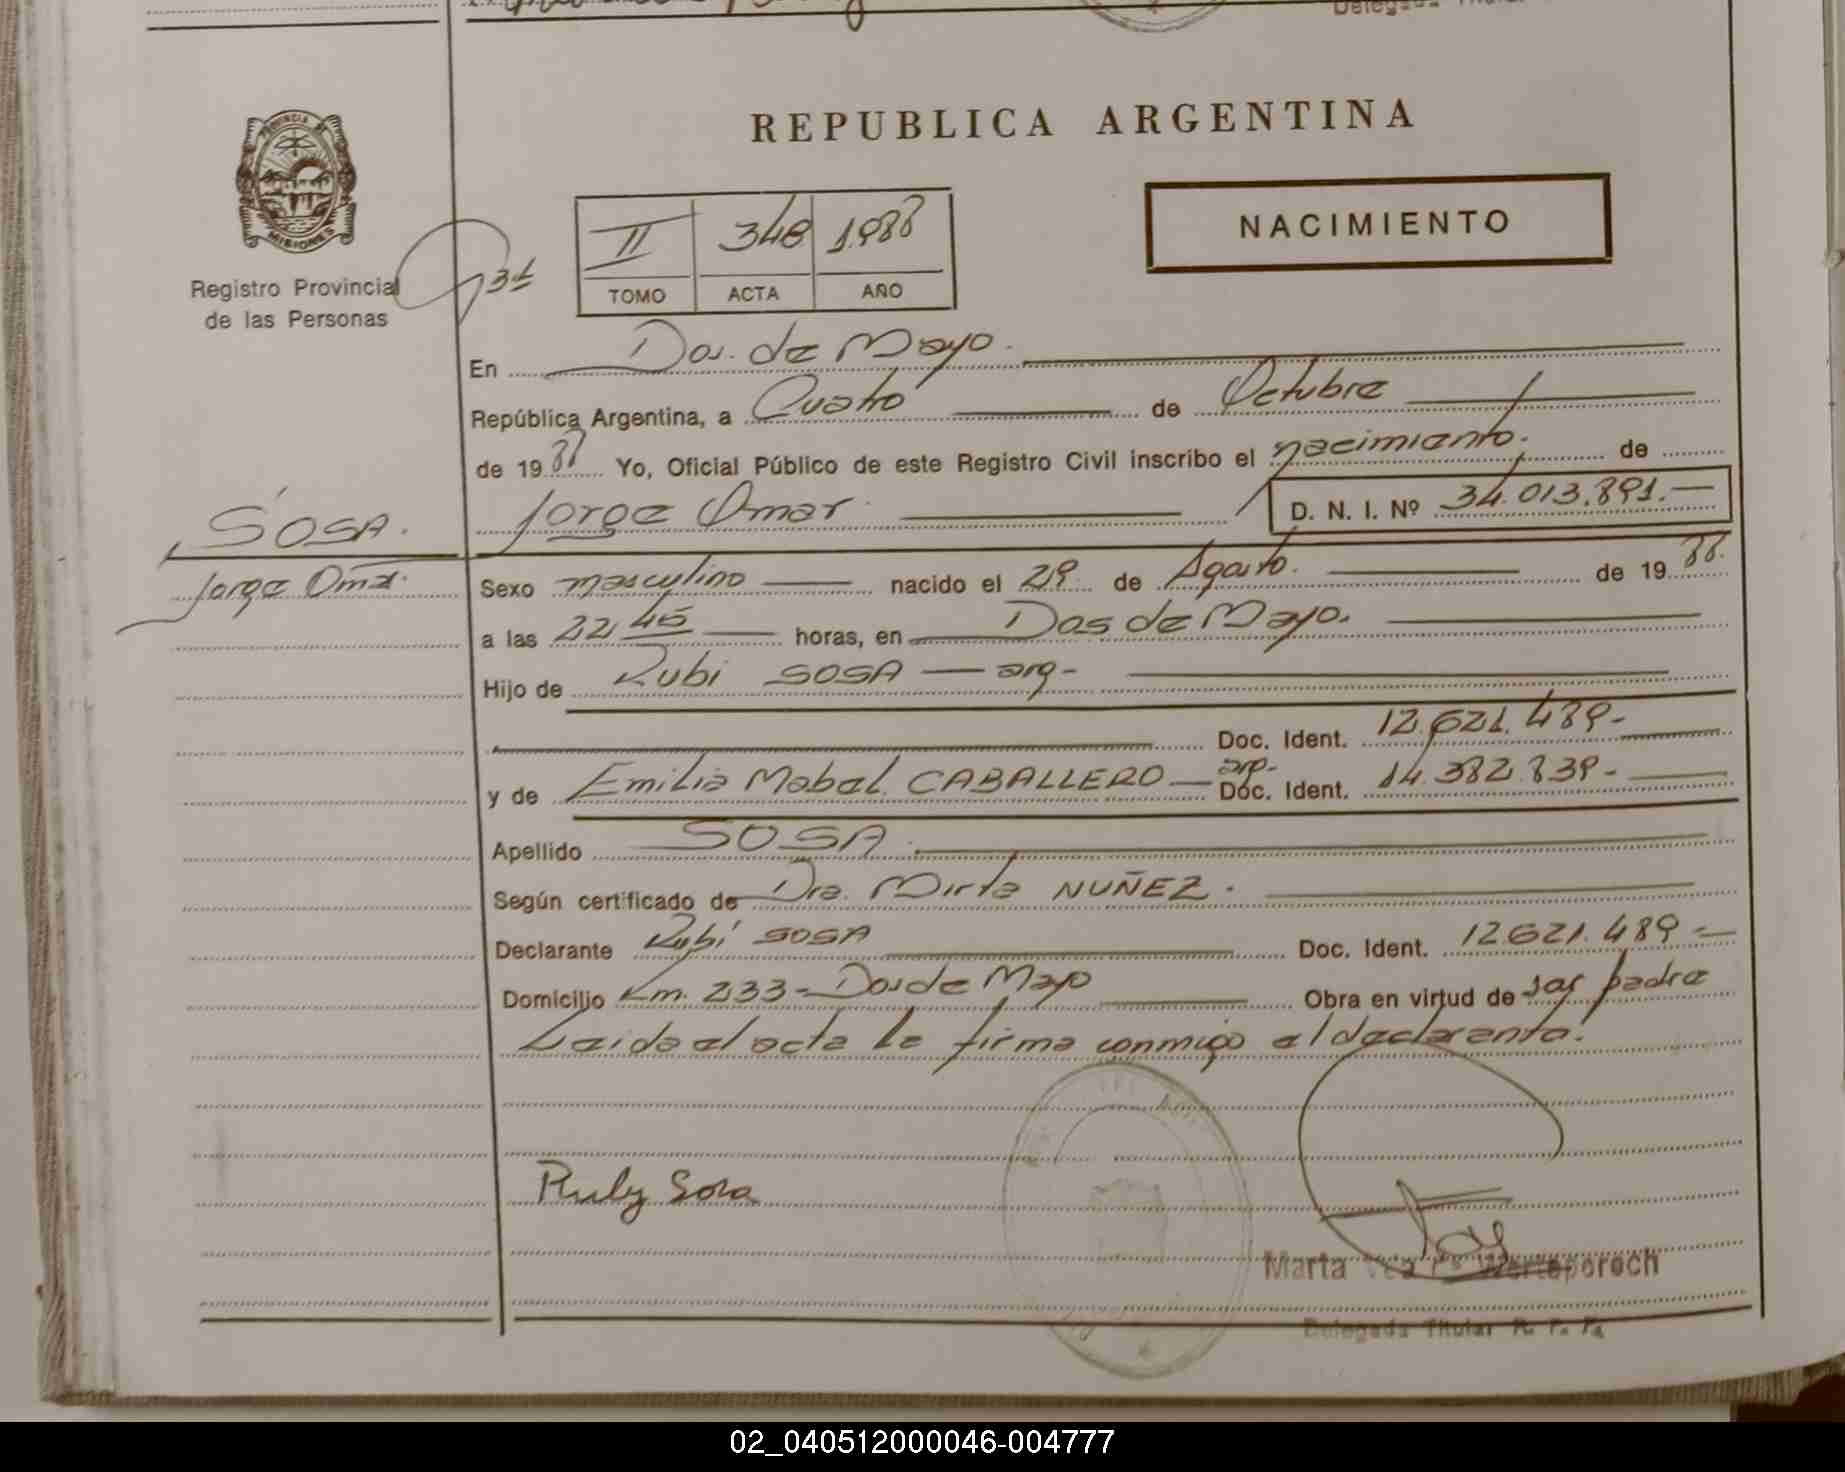 REPUBLICA ARGENTINA
PROVINCIA DE
MISIONES
Registro Provincial
de las Personas
II 348 1988
TOMO ACTA AÑO
NACIMIENTO
En Dos de Mayo.
República Argentina, a Cuatro de Octubre
de 1988 Yo, Oficial Público de este Registro Civil inscribo el nacimiento. de
SOSA.
Jorge Omar
Jorge Omar D. N. I. Nº 34.013.891.—
Sexo masculino nacido el 29 de Agosto. de 1988.
a las 22,45 horas, en Dos de Mayo.
Hijo de Rubi SOSA — arg-
Doc. Ident. 12.621.489-
y de Emilia Mabel CABALLERO — arg- Doc. Ident. 14.382.839-
Apellido SOSA
Según certificado de Dra. Mirta NUÑEZ.
Declarante Rubi SOSA Doc. Ident. 12.621.489-
Domicilio Km. 233-Dos de Mayo Obra en virtud de ser padre
Leida el acta la firma conmigo el declarante.
Ruly Sosa
Marta
Delegada Titular R. P. P.
02_040512000046-004777